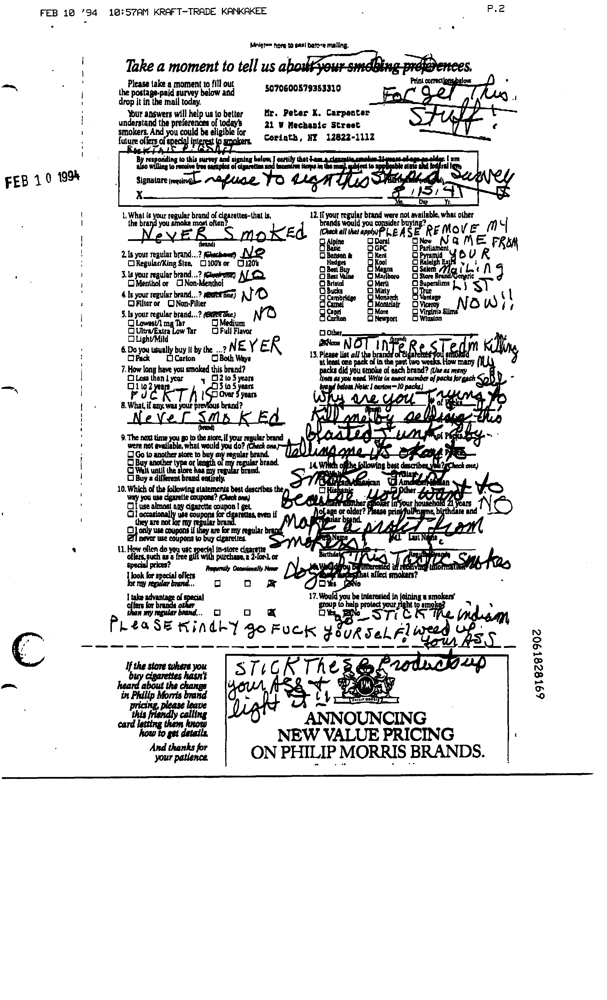 FEB 10 '94 10:57AM KRAFT-TRADE KANKAKEE
P.2
Moisten here to seal before mailing.
Take a moment to tell us about your smoking preferences.
Please take a moment to fill out
the postage-paid survey below and
drop it in the mail today.
Your answers will help us to better
understand the preferences of today's
smokers. And you could be eligible for
future offers of special interest to smokers.
5070600579353310
Mr. Peter K. Carpenter
21 W Mechanic Street
Corinth, NY 12822-1112
Print corrections below
Forget This
Stuff!
FEB 10 1994
By responding to this survey and signing below, I certify that I am a cigarette smoker 21 years of age or older. I am
also willing to receive free samples of cigarettes and incentive items in the mail, subject to applicable state and federal law.
Signature (required) I refuse to sign this Stupid Survey
X
8 15 41
Mo. Day Yr.
1. What is your regular brand of cigarettes–that is,
the brand you smoke most often?
NEVER SMOKEd
(brand)
2. Is your regular brand...? (Check one) NO
☐ Regular/King Size. ☐ 100's or ☐ 120's
3. Is your regular brand...? (Check one) NO
☐ Menthol or ☐ Non-Menthol
4. Is your regular brand...? (Check one) NO
☐ Filter or ☐ Non-Filter
5. Is your regular brand...? (Check one) NO
☐ Lowest/1 mg Tar ☐ Medium
☐ Ultra/Extra Low Tar ☐ Full Flavor
☐ Light/Mild
6. Do you usually buy it by the ...? NEVER
☐ Pack ☐ Carton ☐ Both Ways
7. How long have you smoked this brand?
☐ Less than 1 year ☐ 2 to 5 years
☐ 1 to 2 years ☐ 3 to 5 years
FUCK THIS ☐ Over 5 years
8. What, if any, was your previous brand?
NEVER SMOKEd
(brand)
9. The next time you go to the store, if your regular brand
were not available, what would you do? (Check one)
☐ Go to another store to buy my regular brand.
☐ Buy another type or length of my regular brand.
☐ Wait until the store has my regular brand.
☐ Buy a different brand entirely.
10. Which of the following statements best describes the
way you use cigarette coupons? (Check one)
☐ I use almost any cigarette coupon I get.
☐ I occasionally use coupons for cigarettes, even if
they are not for my regular brand.
☐ I only use coupons if they are for my regular brand.
☑ I never use coupons to buy cigarettes.
11. How often do you use special in-store cigarette
offers, such as a free gift with purchase, a 2-for-1, or
special prices?
Frequently Occasionally Never
I look for special offers
for my regular brand... ☐ ☐ ☒
I take advantage of special
offers for brands other
than my regular brand... ☐ ☐ ☒
12. If your regular brand were not available, what other
brands would you consider buying?
(Check all that apply) PLEASE REMOVE MY
NAME FROM
YOUR
MAILING
LIST
NOW!!
☐ Alpine ☐ Doral ☐ Now
☐ Basic ☐ GPC ☐ Parliament
☐ Benson & Hedges ☐ Kent ☐ Pyramid
☐ Kool ☐ Raleigh Extra
☐ Best Buy ☐ Magna ☐ Salem
☐ Best Value ☐ Marlboro ☐ Store Brand/Generic
☐ Bristol ☐ Merit ☐ Superslims
☐ Bucks ☐ Misty ☐ True
☐ Cambridge ☐ Monarch ☐ Vantage
☐ Camel ☐ Montclair ☐ Viceroy
☐ Capri ☐ More ☐ Virginia Slims
☐ Carlton ☐ Newport ☐ Winston
☐ Other
☒ None NOT INTERESTED Killing
my
Self
13. Please list all the brands of cigarettes you smoked
at least one pack of in the past two weeks. How many
packs did you smoke of each brand? (Use as many
lines as you need. Write in exact number of packs for each
brand below. Note: 1 carton=10 packs.)
Why are you Trying to
Kill me by selling this
blasted Junk By
telling me its okay to
14. Which of the following best describes you? (Check one)
Smoke
because you want to
NO
make a profit from
Smokers!
No This Taste Smokes
☐ Yes ☒ No
17. Would you be interested in joining a smokers'
group to help protect your right to smoke?
☐ Yes ☒ No
STICK The indian
weed up
your ASS
PLEASE KINDLY go FUCK YOURSELF!
If the store where you
buy cigarettes hasn't
heard about the change
in Philip Morris brand
pricing, please leave
this friendly calling
card letting them know
how to get details.
And thanks for
your patience.
STICK These Products up
your ASS &
light it!!
ANNOUNCING
NEW VALUE PRICING
ON PHILIP MORRIS BRANDS.
2061828169